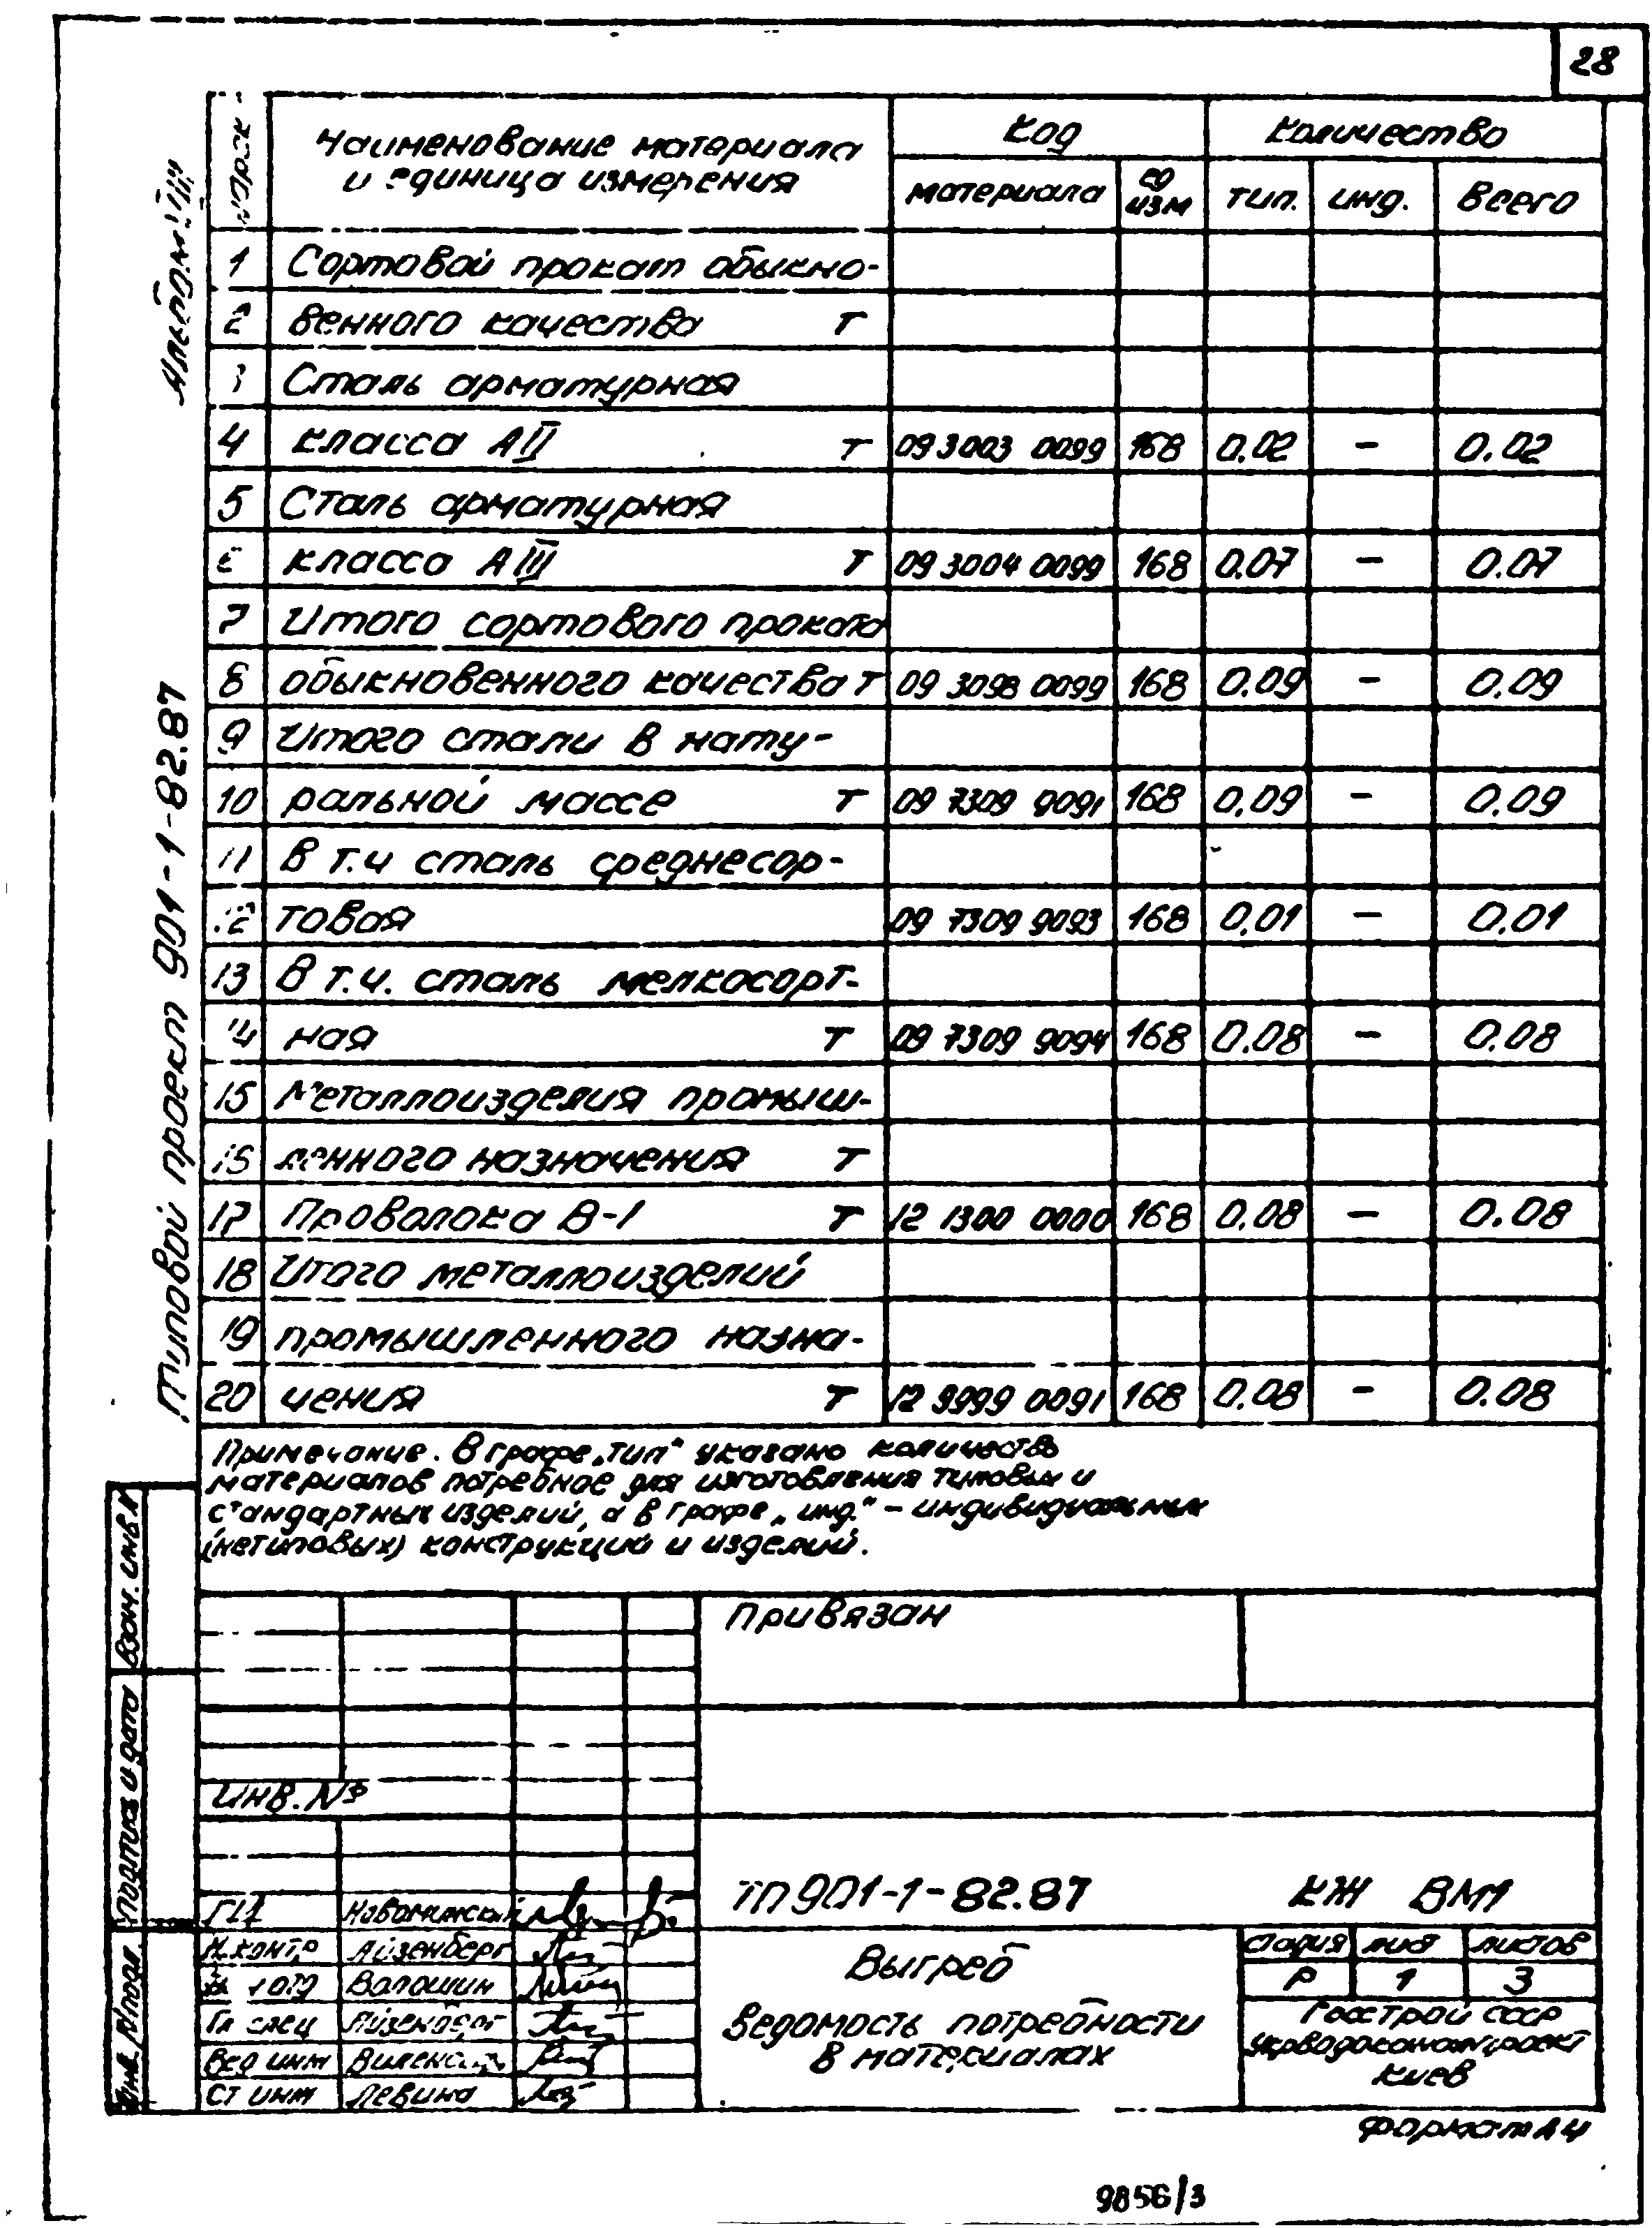 28
Альбом III
Типовой проект 901-1-82.87
N строк
Наименование материала
и единица измерения
Код
Количество
материала
ед
изм
тип.
инд.
Всего
1 Сортовой прокат обыкно-
2 венного качества т
3 Сталь арматурная
4 класса АII т 09 3003 0099 168 0.02 – 0.02
5 Сталь арматурная
6 класса АIII т 09 3004 0099 168 0.07 – 0.07
7 Итого сортового проката
8 обыкновенного качества т 09 3098 0099 168 0.09 – 0.09
9 Итого стали в нату-
10 ральной массе т 09 7309 9091 168 0.09 – 0.09
11 В т.ч сталь среднесор-
12 товая 09 7309 9093 168 0.01 – 0.01
13 В т.ч. сталь мелкосорт-
14 ная т 09 7309 9094 168 0.08 – 0.08
15 Металлоизделия промыш-
16 ленного назначения т
17 Проволока В-1 т 12 1300 0000 168 0.08 – 0.08
18 Итого металлоизделий
19 промышленного назна-
20 чения т 12 9999 0091 168 0.08 – 0.08
Примечание. В графе „тип“ указано количество
материалов потребное для изготовления типовых и
стандартных изделий, а в графе „инд.“ – индивидуальных
(нетиповых) конструкций и изделий.
Взам. инв N
Подпись и дата
Инв. N подл.
Привязан
Инв. №
ГИП
Н.контр Айзенберг
Волошин
Гл спец Айзенберг
Вед инж
Ст инж Левина
ТП 901-1-82.87 КЖ ВМ1
Выгреб
Ведомость потребности
в материалах
стадия лист листов
Р 1 3
Госстрой СССР
Укрводоканалпроект
Киев
Формат А4
9856/3